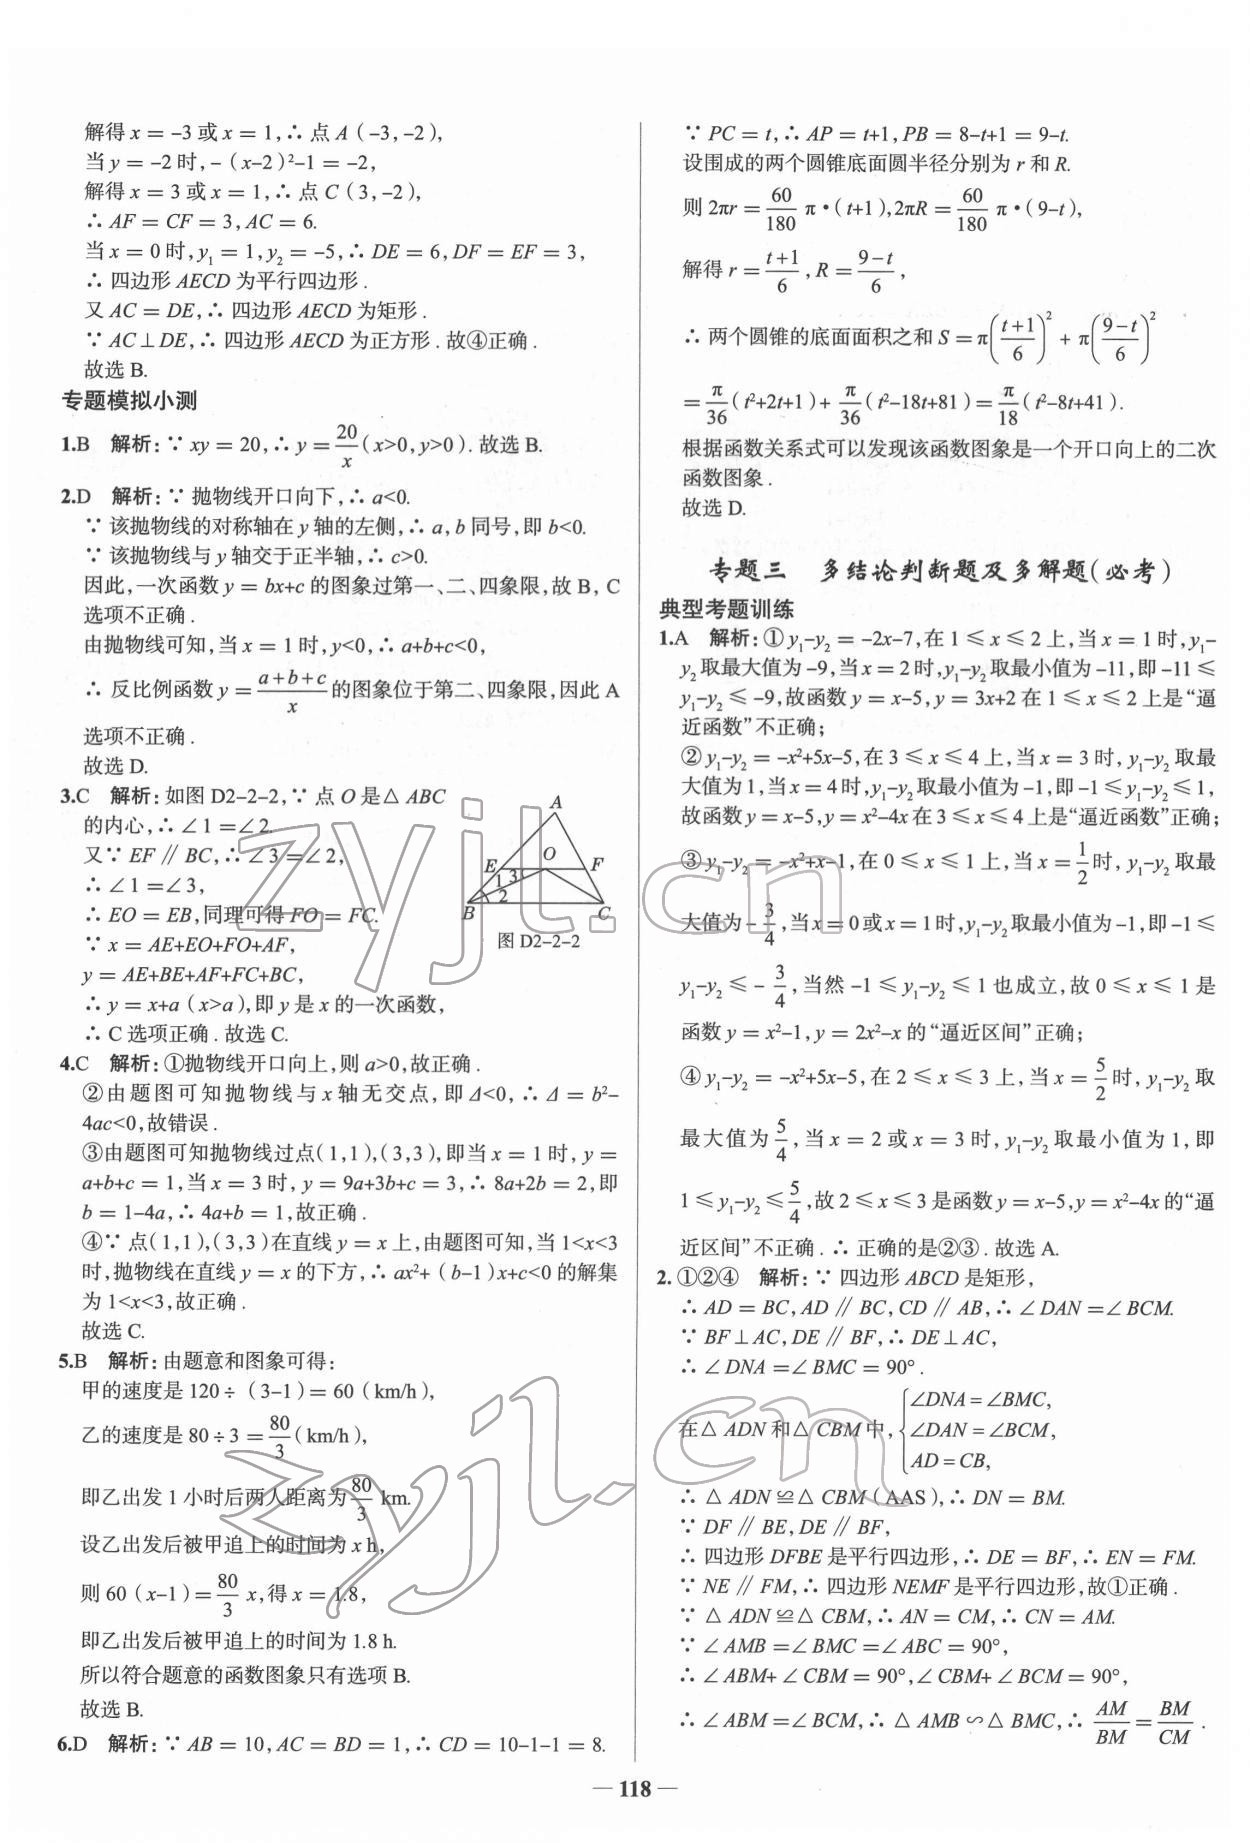 解得 x = -3 或 x = 1,∴ 点 A (-3,-2),
当 y = -2 时, - (x-2)²-1 = -2,
解得 x = 3 或 x = 1,∴ 点 C (3,-2),
∴ AF = CF = 3, AC = 6.
当 x = 0 时, y₁ = 1, y₂ = -5,∴ DE = 6, DF = EF = 3,
∴ 四边形 AECD 为平行四边形 .
又 AC = DE,∴ 四边形 AECD 为矩形 .
∵ AC⊥DE,∴ 四边形 AECD 为正方形 . 故④正确 .
故选 B.
专题模拟小测
1.B 解析:∵ xy = 20,∴ y = 20/x (x>0, y>0) . 故选 B.
2.D 解析:∵ 抛物线开口向下,∴ a<0.
∵ 该抛物线的对称轴在 y 轴的左侧,∴ a, b 同号,即 b<0.
∵ 该抛物线与 y 轴交于正半轴,∴ c>0.
因此,一次函数 y = bx+c 的图象过第一、二、四象限,故 B, C
选项不正确 .
由抛物线可知,当 x = 1 时, y<0,∴ a+b+c<0,
∴ 反比例函数 y = (a+b+c)/x 的图象位于第二、四象限,因此 A
选项不正确 .
故选 D.
3.C 解析:如图 D2-2-2,∵ 点 O 是△ ABC
的内心,∴ ∠1 =∠2.
又∵ EF∥BC,∴ ∠3 =∠2,
∴ ∠1 =∠3,
∴ EO = EB,同理可得 FO = FC.
∵ x = AE+EO+FO+AF,
y = AE+BE+AF+FC+BC,
∴ y = x+a (x>a),即 y 是 x 的一次函数,
∴ C 选项正确 . 故选 C.
A
E
O
F
1
3
2
B
C
图 D2-2-2
4.C 解析:①抛物线开口向上,则 a>0,故正确 .
②由题图可知抛物线与 x 轴无交点,即 Δ<0,∴ Δ = b²-
4ac<0,故错误 .
③由题图可知抛物线过点(1,1),(3,3),即当 x = 1 时, y =
a+b+c = 1,当 x = 3 时, y = 9a+3b+c = 3,∴ 8a+2b = 2,即
b = 1-4a,∴ 4a+b = 1,故正确 .
④∵ 点(1,1),(3,3)在直线 y = x 上,由题图可知,当 1<x<3
时,抛物线在直线 y = x 的下方,∴ ax²+ (b-1)x+c<0 的解集
为 1<x<3,故正确 .
故选 C.
5.B 解析:由题意和图象可得:
甲的速度是 120÷ (3-1) = 60 (km/h),
乙的速度是 80÷3 = 80/3 (km/h),
即乙出发 1 小时后两人距离为 80/3 km.
设乙出发后被甲追上的时间为 x h,
则 60 (x-1) = 80/3 x,得 x = 1.8,
即乙出发后被甲追上的时间为 1.8 h.
所以符合题意的函数图象只有选项 B.
故选 B.
6.D 解析:∵ AB = 10, AC = BD = 1,∴ CD = 10-1-1 = 8.
∵ PC = t,∴ AP = t+1, PB = 8-t+1 = 9-t.
设围成的两个圆锥底面圆半径分别为 r 和 R.
则 2πr = 60/180 π·(t+1), 2πR = 60/180 π·(9-t),
解得 r = (t+1)/6, R = (9-t)/6,
∴ 两个圆锥的底面面积之和 S = π((t+1)/6)² + π((9-t)/6)²
= π/36 (t²+2t+1) + π/36 (t²-18t+81) = π/18 (t²-8t+41).
根据函数关系式可以发现该函数图象是一个开口向上的二次
函数图象 .
故选 D.
专题三 多结论判断题及多解题(必考)
典型考题训练
1.A 解析:① y₁-y₂ = -2x-7,在 1 ≤ x ≤ 2 上,当 x = 1 时, y₁-
y₂取最大值为 -9,当 x = 2 时, y₁-y₂取最小值为 -11,即 -11 ≤
y₁-y₂ ≤ -9,故函数 y = x-5, y = 3x+2 在 1 ≤ x ≤ 2 上是“逼
近函数”不正确;
② y₁-y₂ = -x²+5x-5,在 3 ≤ x ≤ 4 上,当 x = 3 时, y₁-y₂取最
大值为 1,当 x = 4 时, y₁-y₂取最小值为 -1,即 -1 ≤ y₁-y₂ ≤ 1,
故函数 y = x-5, y = x²-4x 在 3 ≤ x ≤ 4 上是“逼近函数”正确;
③ y₁-y₂ = -x²+x-1,在 0 ≤ x ≤ 1 上,当 x = 1/2 时, y₁-y₂取最
大值为 -3/4,当 x = 0 或 x = 1 时, y₁-y₂取最小值为 -1,即 -1 ≤
y₁-y₂ ≤ -3/4,当然 -1 ≤ y₁-y₂ ≤ 1 也成立,故 0 ≤ x ≤ 1 是
函数 y = x²-1, y = 2x²-x 的“逼近区间”正确;
④ y₁-y₂ = -x²+5x-5,在 2 ≤ x ≤ 3 上,当 x = 5/2 时, y₁-y₂取
最大值为 5/4,当 x = 2 或 x = 3 时, y₁-y₂取最小值为 1,即
1 ≤ y₁-y₂ ≤ 5/4,故 2 ≤ x ≤ 3 是函数 y = x-5, y = x²-4x 的“逼
近区间”不正确 . ∴ 正确的是②③ . 故选 A.
2. ①②④ 解析:∵ 四边形 ABCD 是矩形,
∴ AD = BC, AD∥BC, CD∥AB,∴ ∠DAN =∠BCM.
∵ BF⊥AC, DE∥BF,∴ DE⊥AC,
∴ ∠DNA =∠BMC = 90° .
在△ ADN 和△ CBM 中, { ∠DNA =∠BMC,
∠DAN =∠BCM,
AD = CB,
∴ △ ADN≌△ CBM (AAS),∴ DN = BM.
∵ DF∥BE, DE∥BF,
∴ 四边形 DFBE 是平行四边形,∴ DE = BF,∴ EN = FM.
∵ NE∥FM,∴ 四边形 NEMF 是平行四边形,故①正确 .
∵ △ ADN≌△ CBM,∴ AN = CM,∴ CN = AM.
∵ ∠AMB =∠BMC =∠ABC = 90°,
∴ ∠ABM+ ∠CBM = 90°,∠CBM+ ∠BCM = 90°,
∴ ∠ABM =∠BCM,∴ △ AMB∽△ BMC,∴ AM/BM = BM/CM .
— 118 —
zyjl.cn
zyjl.cn